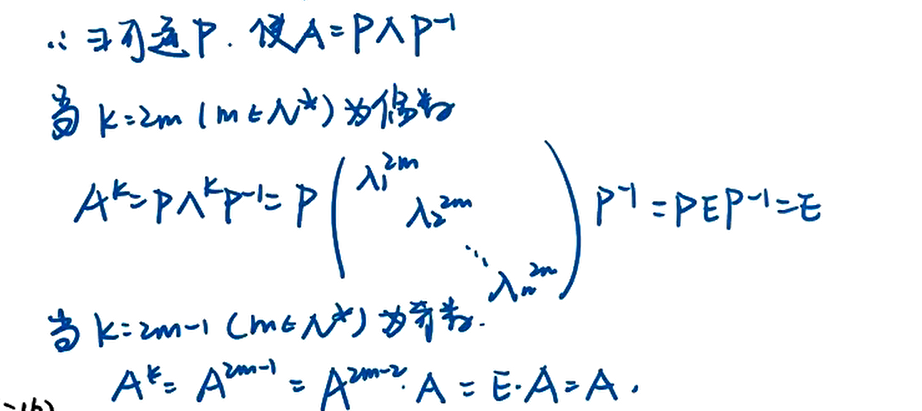 ∴ ∃可逆P. 使A=PΛP⁻¹
当 k=2m (m∈N*) 为偶数
Aᵏ=PΛᵏP⁻¹=P(λ₁²ᵐ λ₂²ᵐ ⋱ λₙ²ᵐ)P⁻¹=PEP⁻¹=E
当 k=2m-1 (m∈N*) 为奇数.
Aᵏ= A²ᵐ⁻¹ = A²ᵐ⁻²·A = E·A=A.